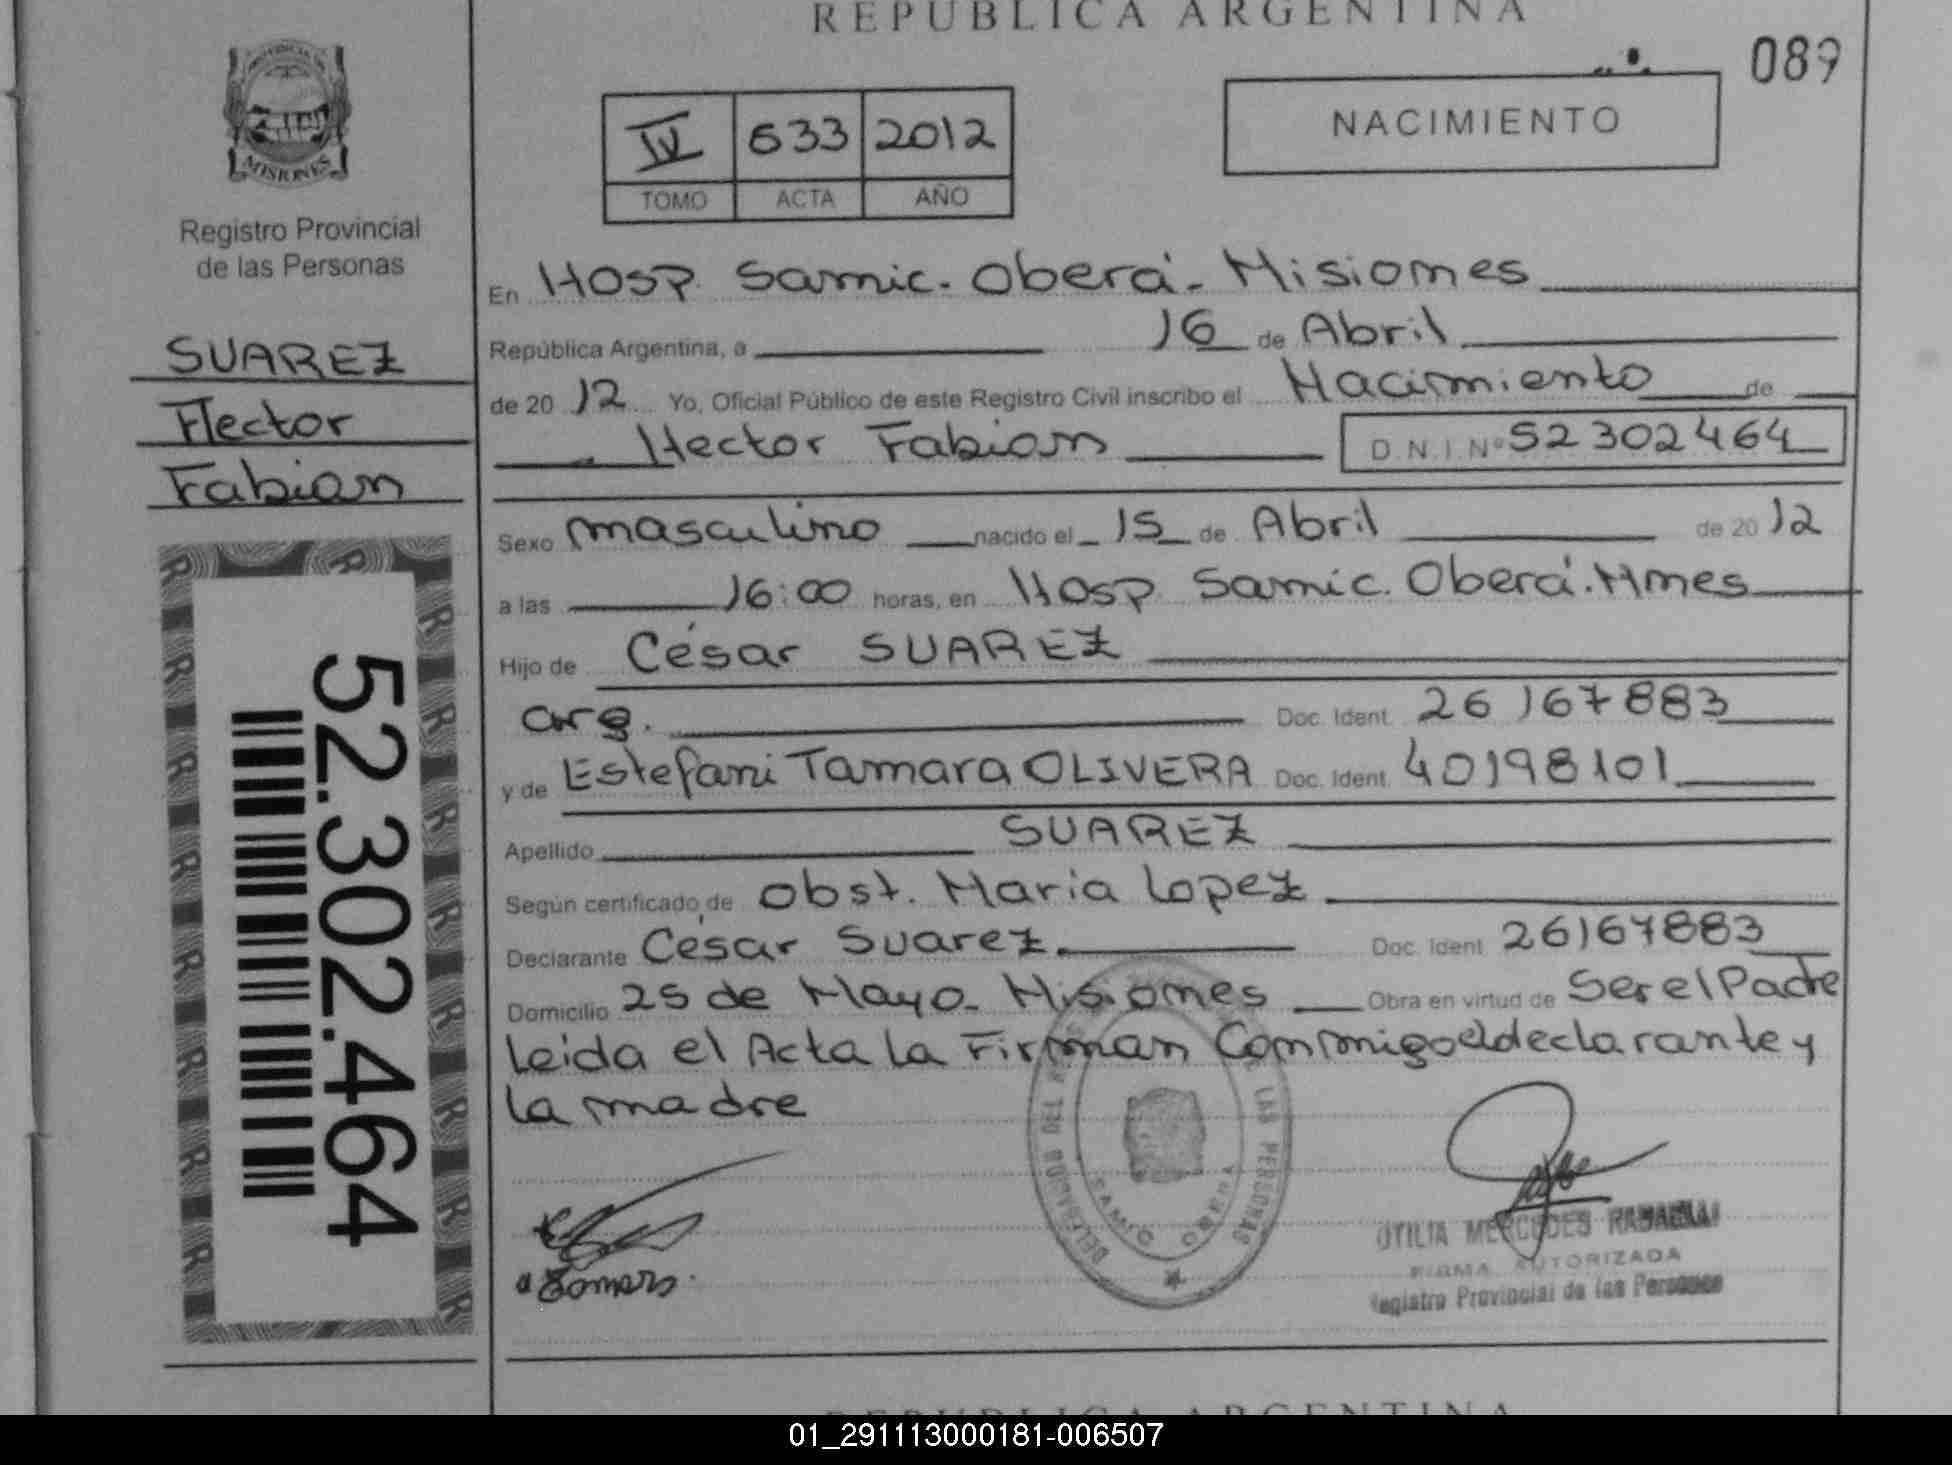 REPUBLICA ARGENTINA
089
PROVINCIA DE
MISIONES
Registro Provincial
de las Personas
IV 633 2012
TOMO ACTA AÑO
NACIMIENTO
SUAREZ
Hector
Fabian
52.302.464
En Hosp. Samic. Oberá. Misiones
República Argentina, a 16 de Abril
de 2012 Yo, Oficial Público de este Registro Civil inscribo el Nacimiento de
Hector Fabian D.N.I. Nº 52302464
Sexo masculino nacido el 15 de Abril de 2012
a las 16:00 horas, en Hosp. Samic. Oberá. Mnes
Hijo de César SUAREZ
arg. Doc. Ident. 26167883
y de Estefani Tamara OLIVERA Doc. Ident. 40198101
Apellido SUAREZ
Según certificado de Obst. Maria Lopez
Declarante César Suarez. Doc. Ident. 26167883
Domicilio 25 de Mayo. Misiones Obra en virtud de Ser el Padre
Leida el Acta la Firman Conmigo el declarante y
la madre
LAS PERSONAS
SAMIC OBERA
OTILIA MERCEDES
FIRMA AUTORIZADA
Registro Provincial de las Personas
REPUBLICA ARGENTINA
01_291113000181-006507